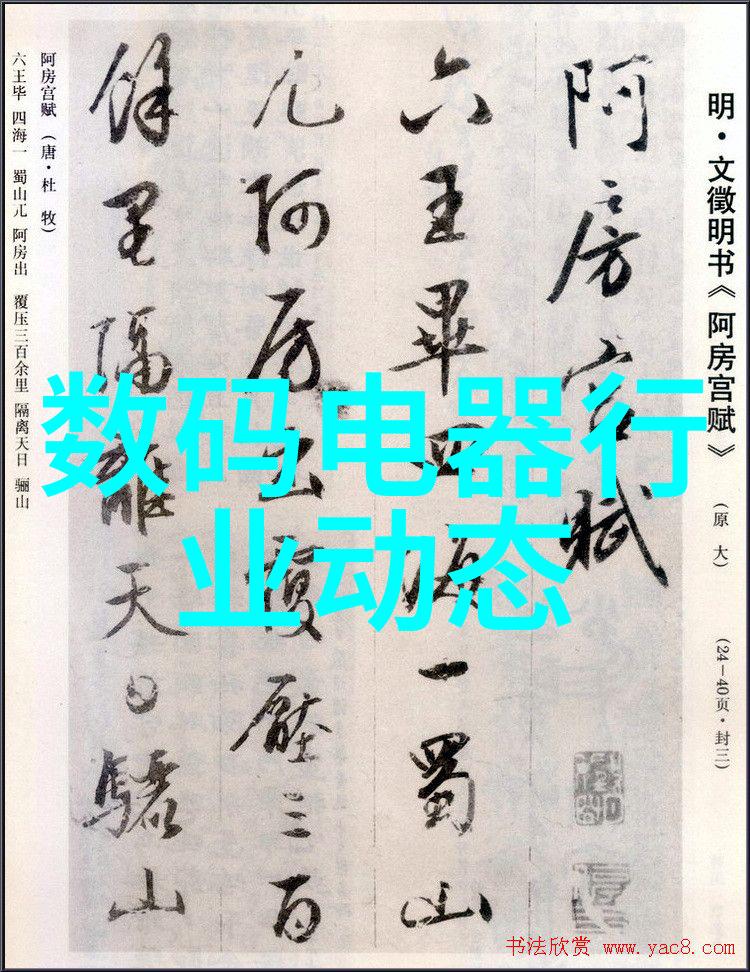 明·文徵明书《阿房宫赋》(原大) (24—40页·封三)
阿房宫赋
六王畢四海一蜀山
兀阿房出覆壓三百
餘里隔離天日驪山
阿房宫赋(唐·杜 牧)
六王毕 四海一 蜀山兀 阿房出 覆压三百余里 隔离天日 骊山
数码电器行
业动态
书法欣赏 www.yac8.com